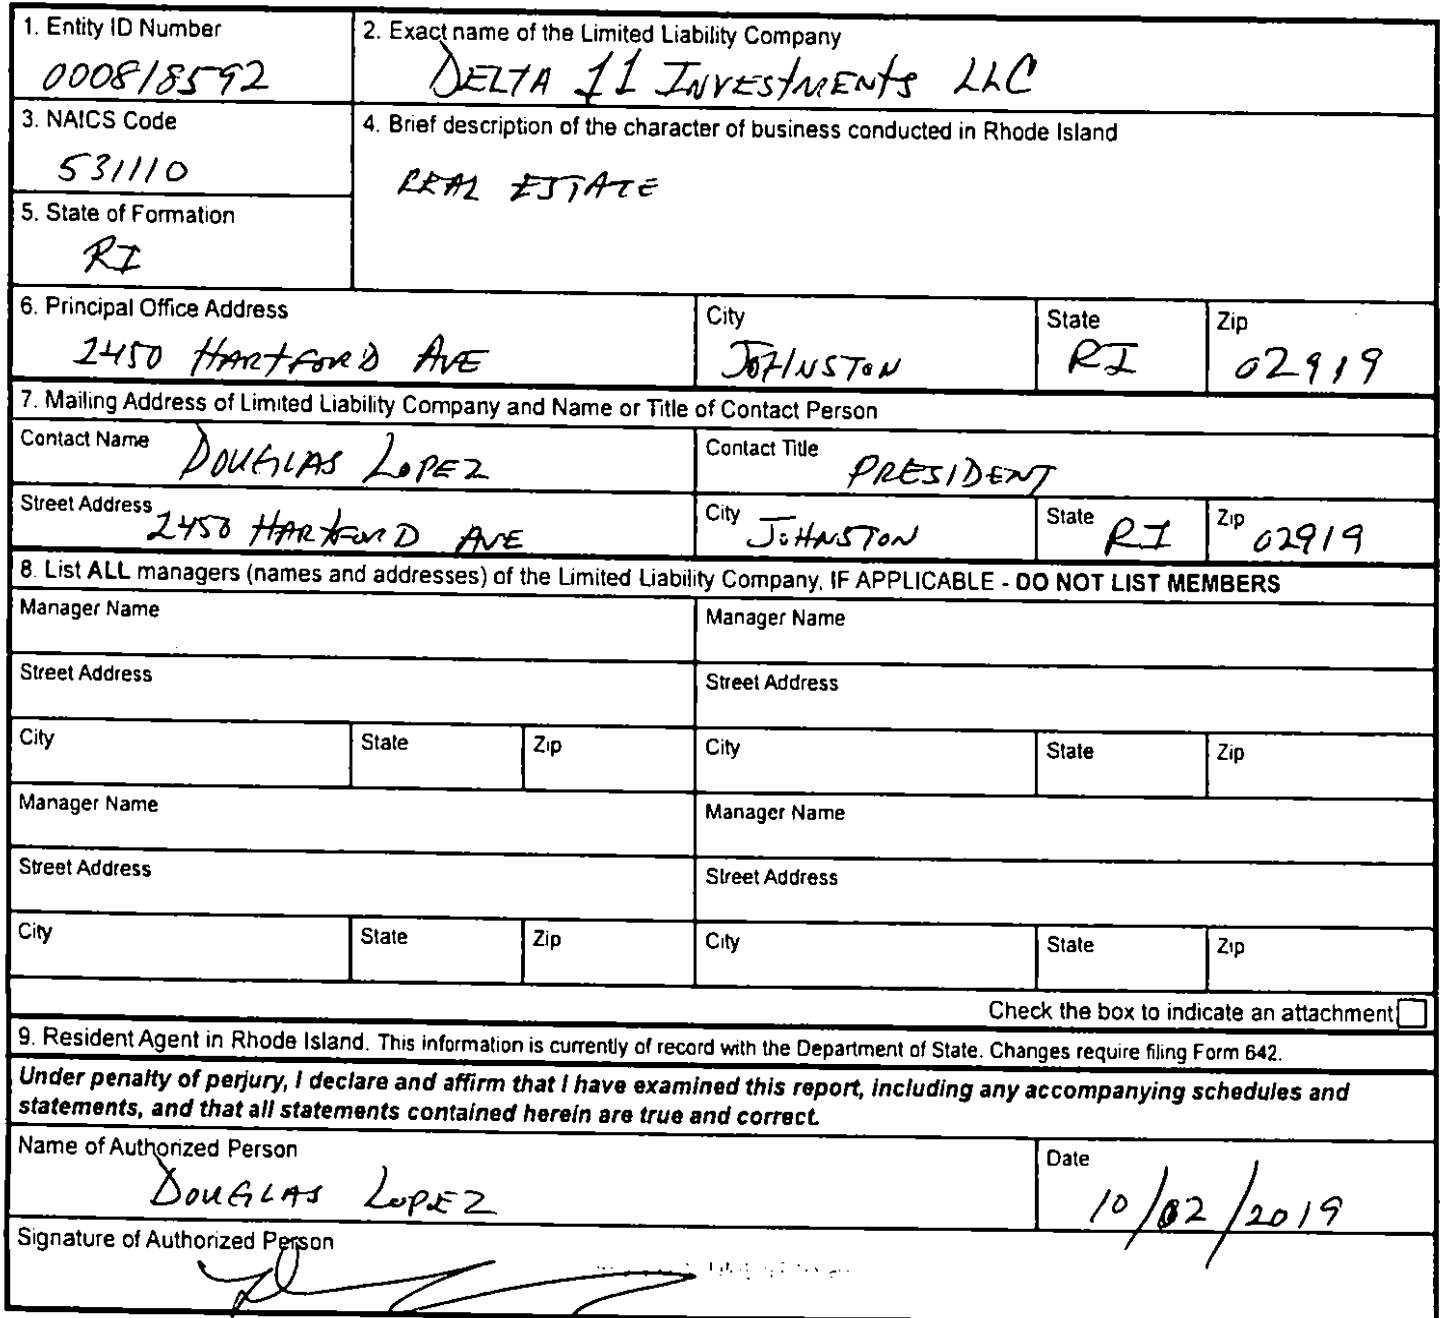 1. Entity ID Number
000818592
2. Exact name of the Limited Liability Company
DELTA 11 INVESTMENTS LLC
3. NAICS Code
531110
4. Brief description of the character of business conducted in Rhode Island
REAL ESTATE
5. State of Formation
RI
6. Principal Office Address
2450 HARTFORD AVE
City
JOHNSTON
State
RI
Zip
02919
7. Mailing Address of Limited Liability Company and Name or Title of Contact Person
Contact Name
DOUGLAS LOPEZ
Contact Title
PRESIDENT
Street Address
2450 HARTFORD AVE
City
JOHNSTON
State
RI
Zip
02919
8. List ALL managers (names and addresses) of the Limited Liability Company, IF APPLICABLE - DO NOT LIST MEMBERS
Manager Name
Manager Name
Street Address
Street Address
City State Zip City State Zip
Manager Name
Manager Name
Street Address
Street Address
City State Zip City State Zip
Check the box to indicate an attachment
9. Resident Agent in Rhode Island. This information is currently of record with the Department of State. Changes require filing Form 642.
Under penalty of perjury, I declare and affirm that I have examined this report, including any accompanying schedules and
statements, and that all statements contained herein are true and correct.
Name of Authorized Person
DOUGLAS LOPEZ
Date
10/02/2019
Signature of Authorized Person